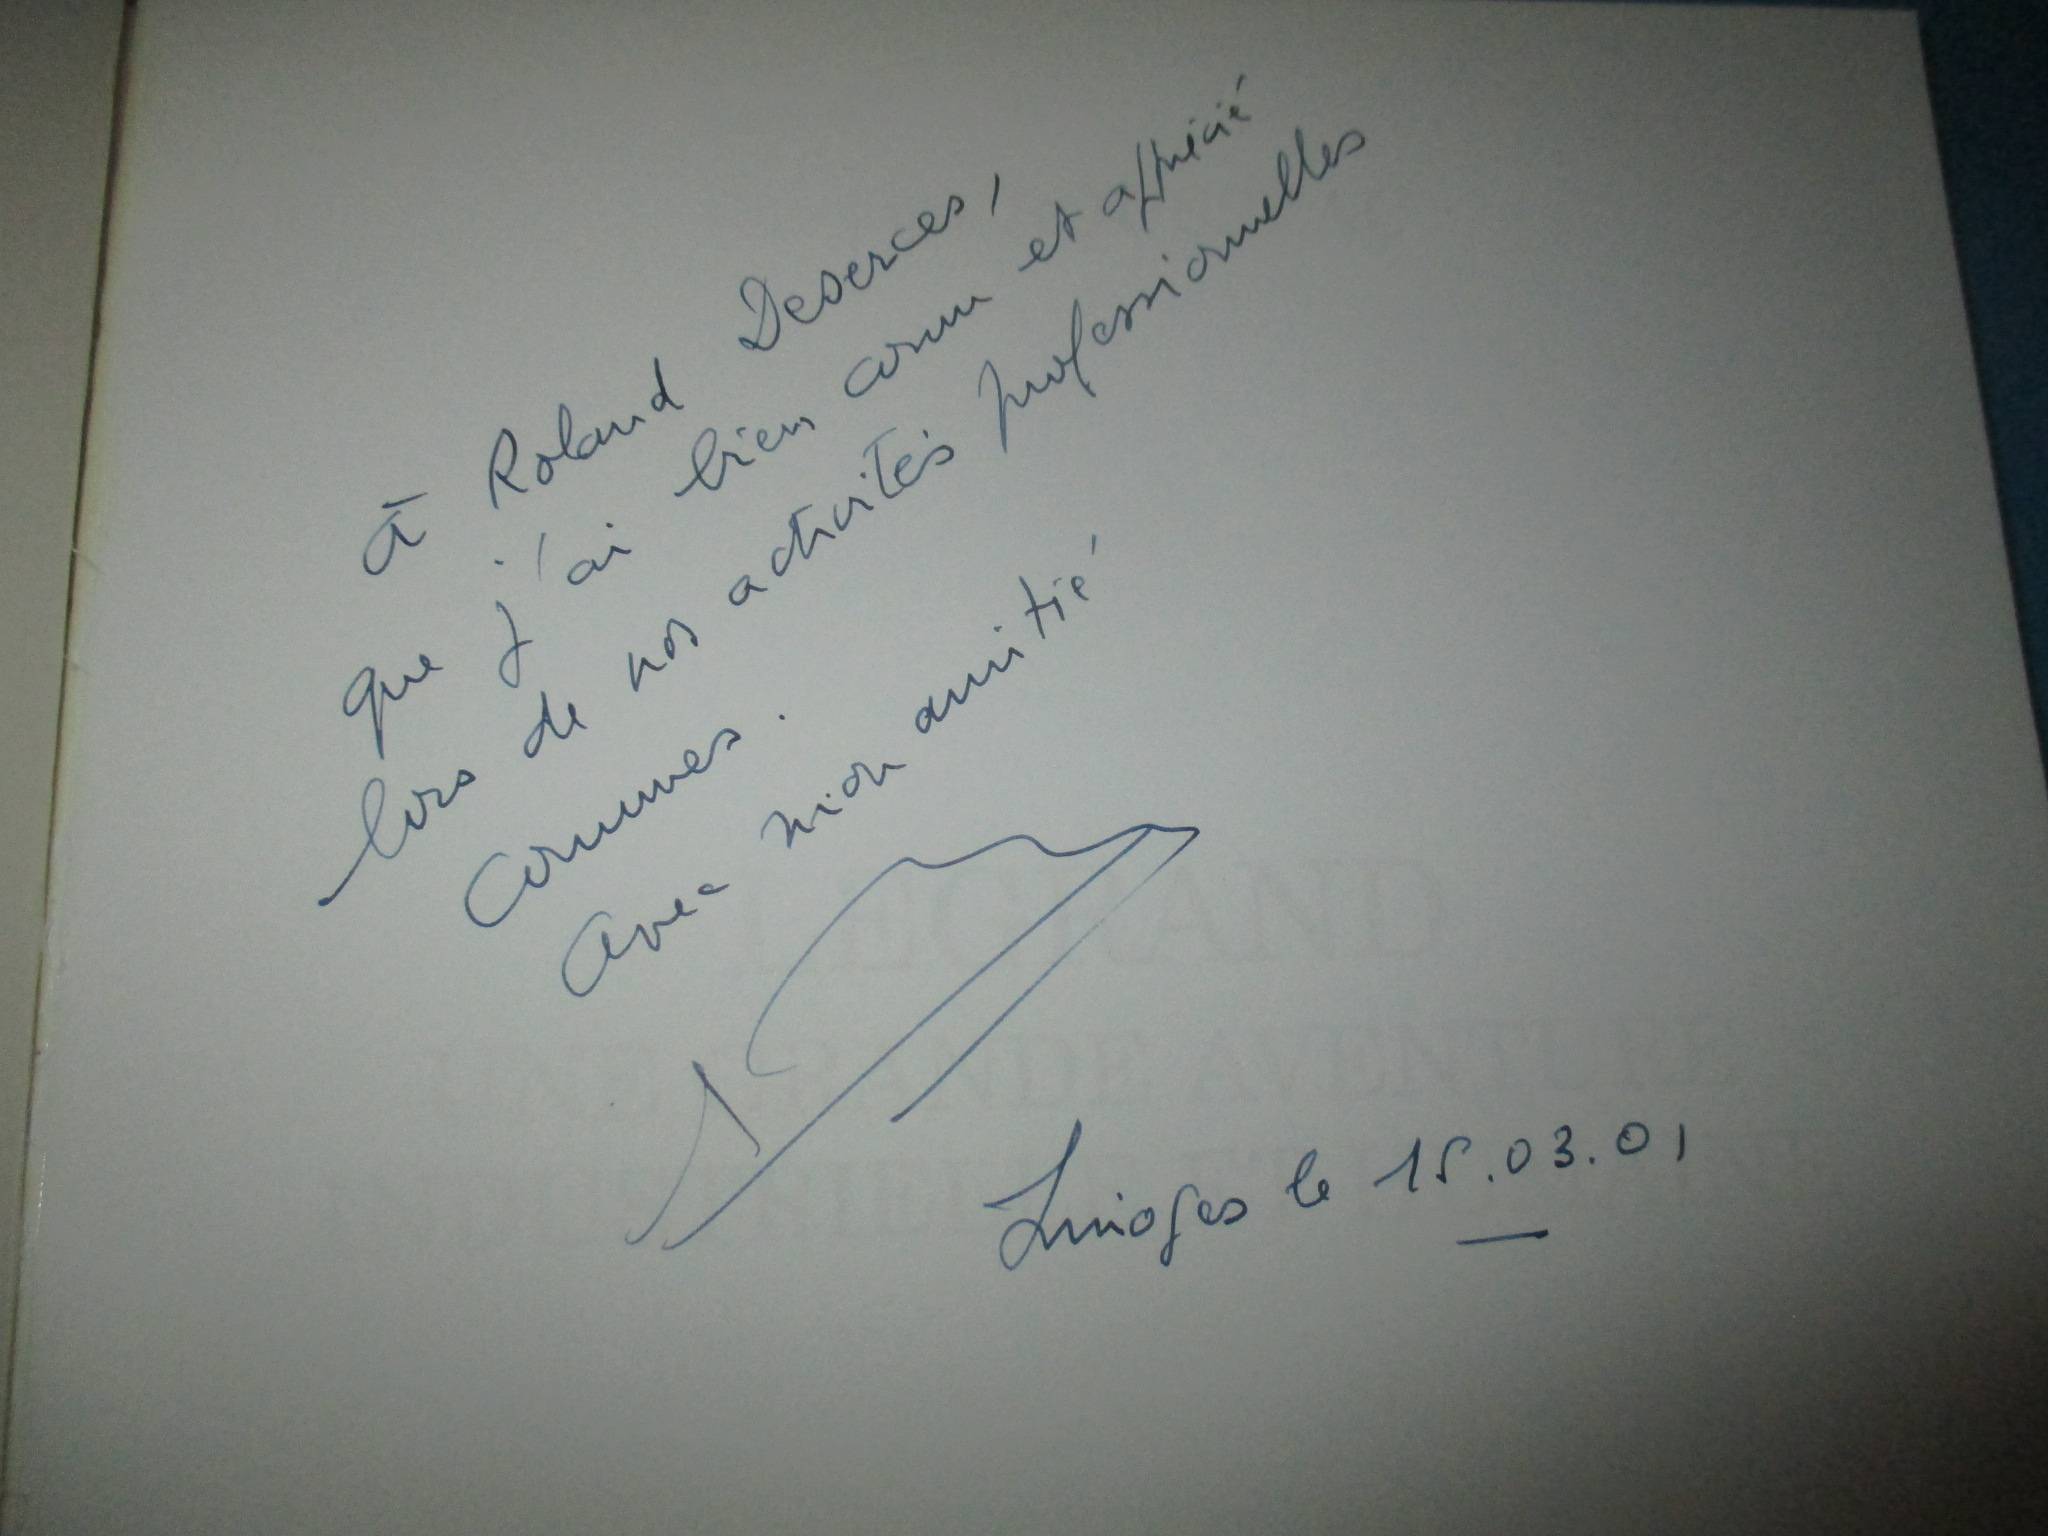 à Roland Deserces,
que j'ai bien connu et apprécié
lors de nos activités professionnelles
communes.
avec mon amitié
Limoges le 15.03.01
LEGRAND
UNE GRANDE AVENTURE